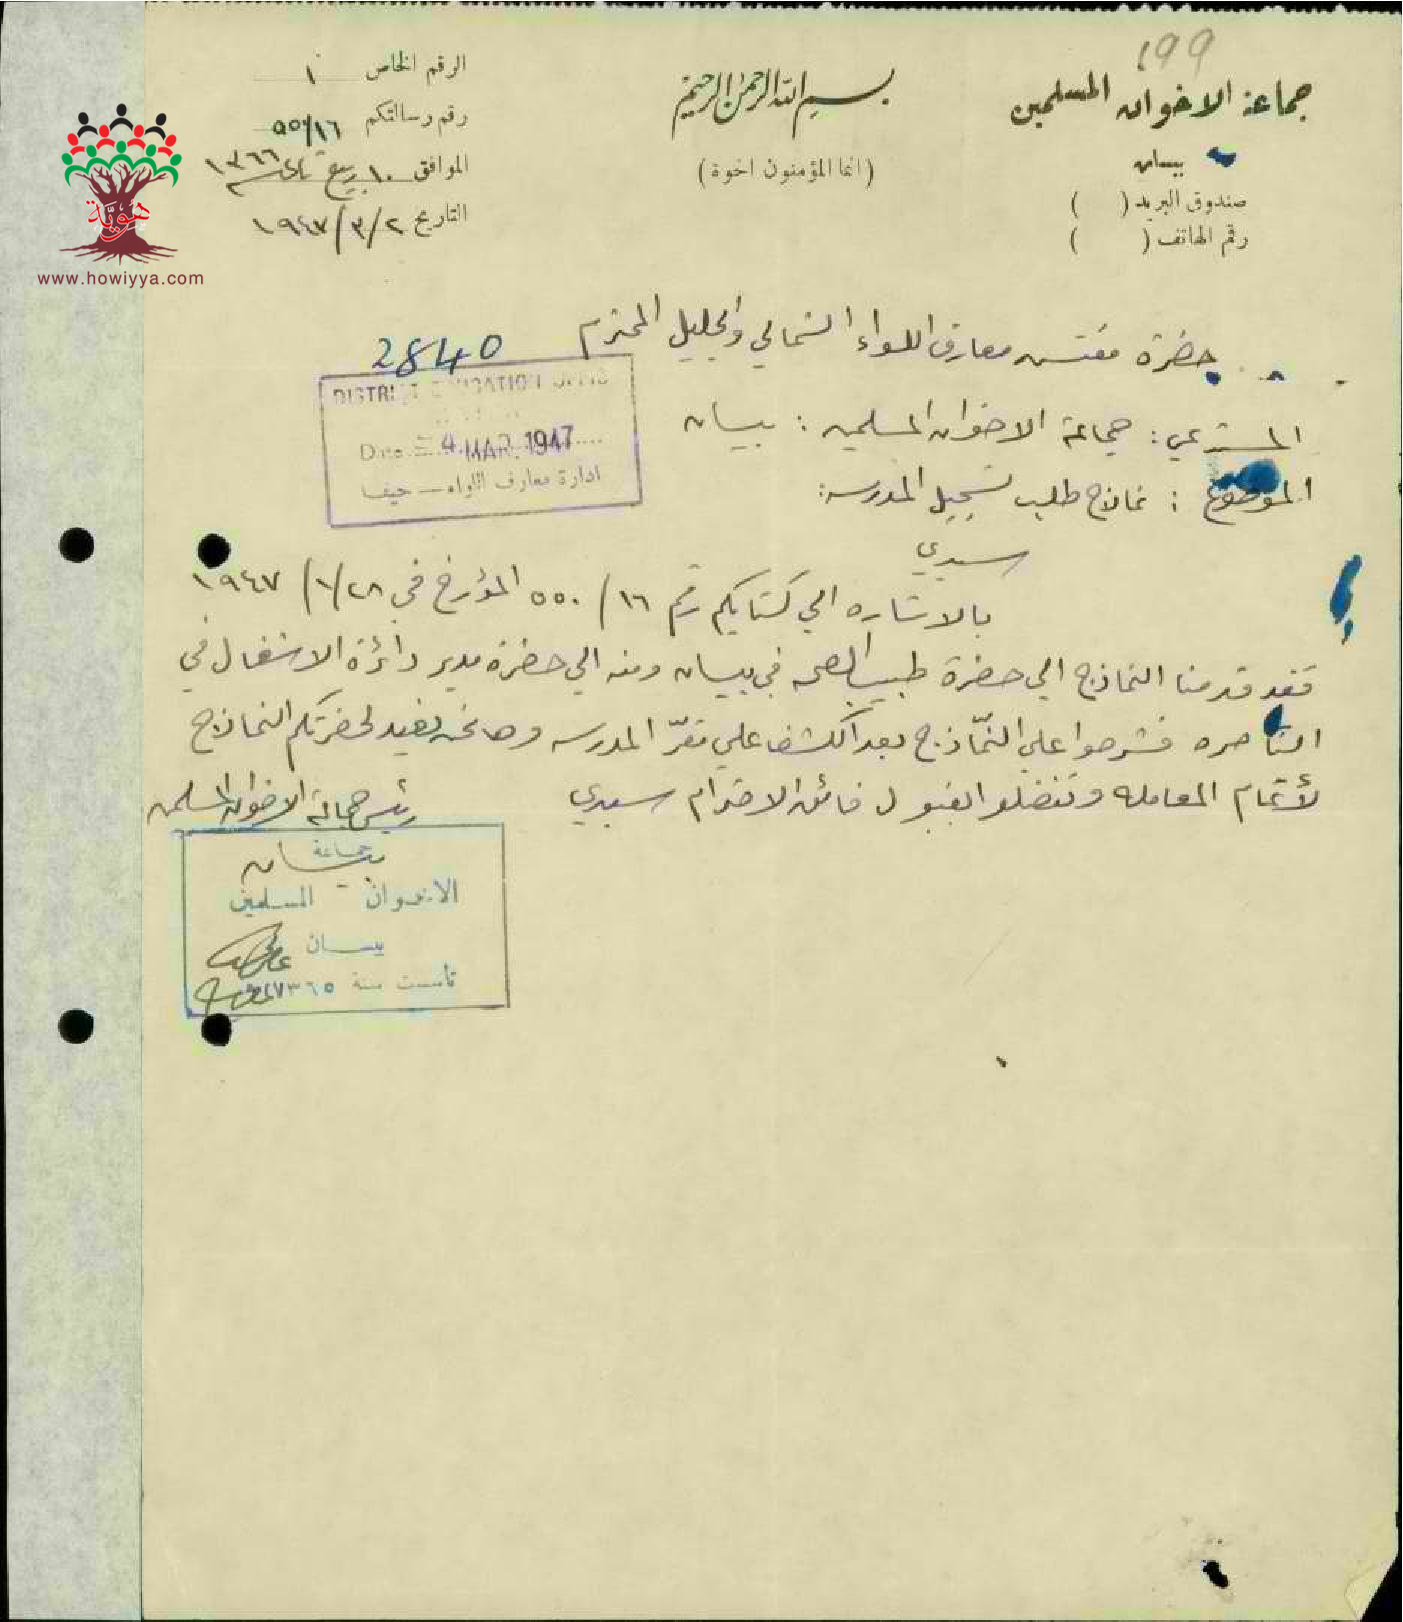 ١٩٩
جماعة الاخوان المسلمين
بيسان
صندوق البريد ( )
رقم الهاتف ( )
بسم الله الرحمن الرحيم
(انما المؤمنون اخوة)
الرقم الخاص ١
رقم رسالتكم ١٦/٥٥٠
الموافق ١٠ ربيع ثاني ١٣٦٦
التاريخ ٢/٣/١٩٤٧
هوية
www.howiyya.com
حضرة مفتش معارف اللواء الشمالي والجليل المحترم
2840
DISTRICT EDUCATION OFFICE
Date 4 MAR. 1947
ادارة معارف اللواء - حيفا
المستدعي: جماعة الاخوان المسلمين: بيسان
الموضوع: نماذج طلب تسجيل المدرسه:
سيدي
بالاشاره الي كتابكم رقم ١٦/ ٥٥٠ المؤرخ في ٢٨/١/ ١٩٤٧
فقد قدمنا النماذج الي حضرة طبيب الصحه في بيسان ومنه الي حضرة مدير دائرة الاشغال في
الناصره فشرحوا علي النّماذج بعد الكشف علي مقرّ المدرسه وها نحن نعيد لحضرتكم النماذج
لأتمام المعامله وتفضلوا بقبول فائق الاحترام سيدي
رئيس جماعة الاخوان المسلمين
بيسان
جماعة
الاخوان المسلمين
بيسان
تأسست سنة ١٣٦٥